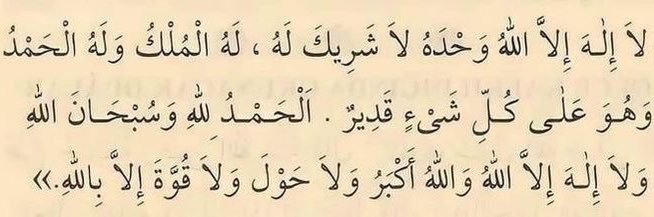 لاَ إِلٰهَ إِلاَّ اللهُ وَحْدَهُ لاَ شَرِيكَ لَهُ ، لَهُ الْمُلْكُ وَلَهُ الْحَمْدُ
وَهُوَ عَلٰى كُلِّ شَىْءٍ قَدِيرٌ . اَلْحَمْدُ لِلهِ وَسُبْحَانَ اللهِ
وَلاَ إِلٰهَ إِلاَّ اللهُ وَاللهُ أَكْبَرُ وَلاَ حَوْلَ وَلاَ قُوَّةَ إِلاَّ بِاللهِ.»